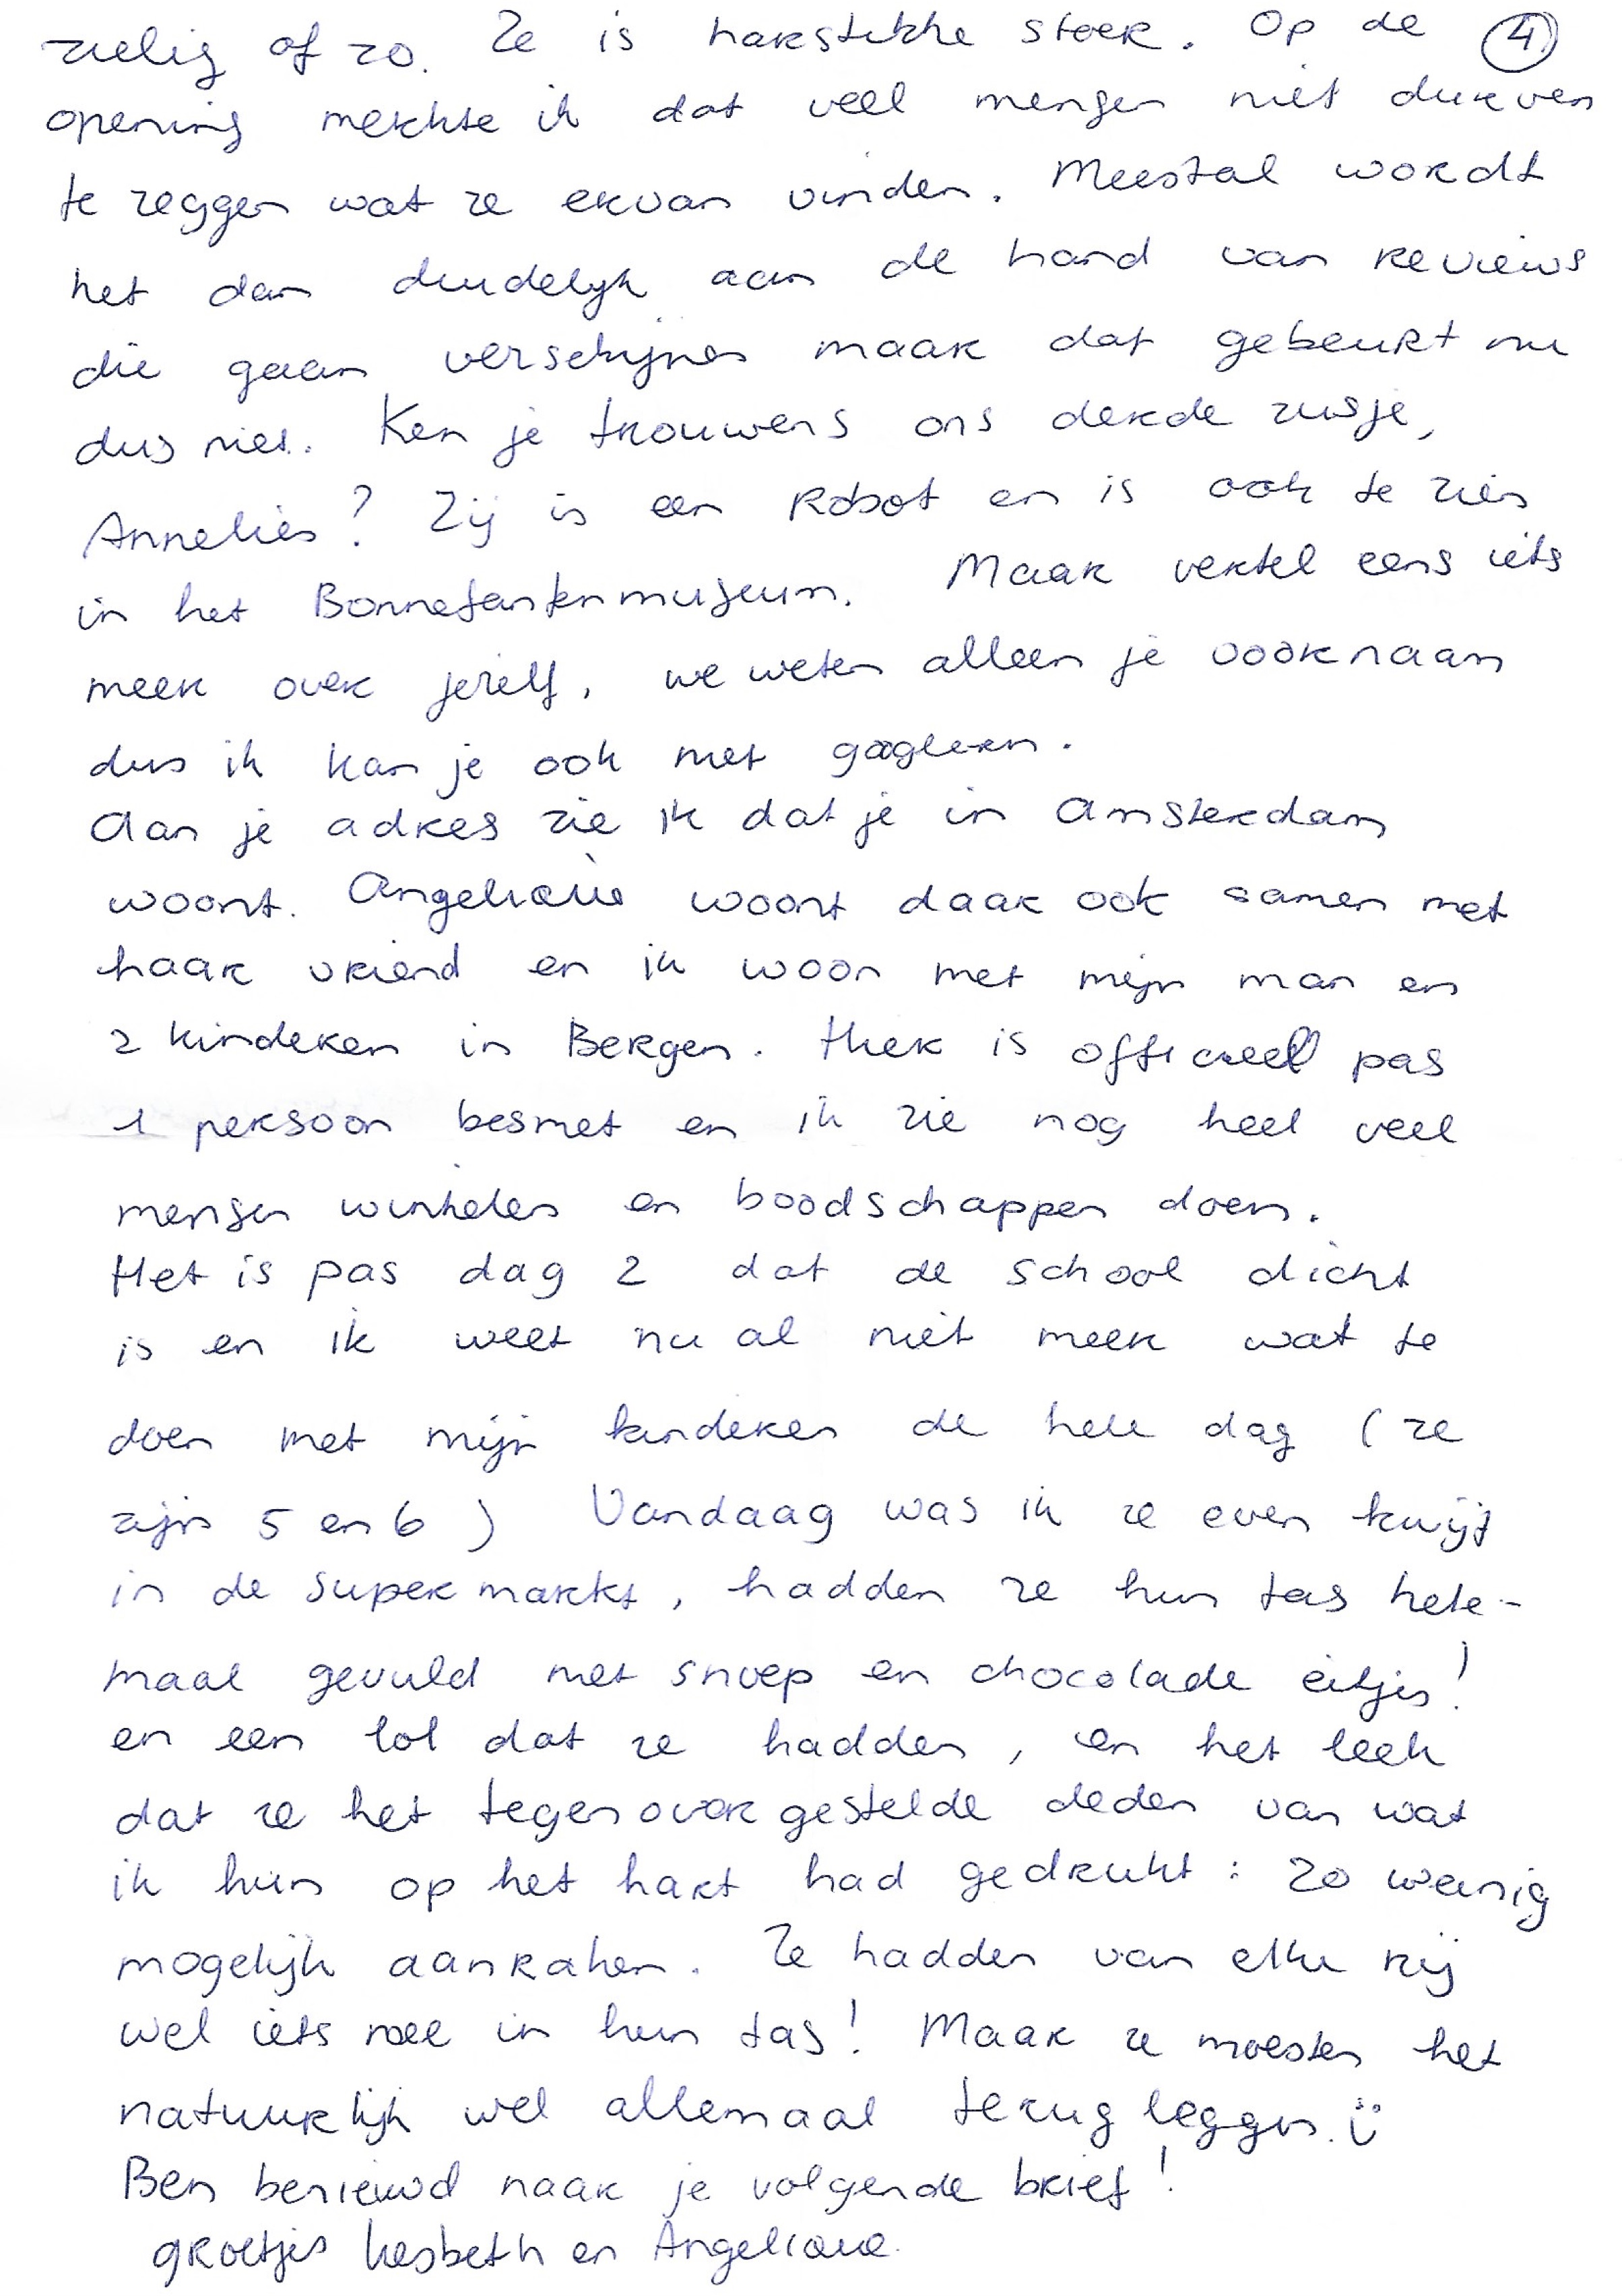 zielig of zo. Ze is hartstikke stoer. Op de ④
opening merkte ik dat veel mensen niet durven
te zeggen wat ze ervan vinden. Meestal wordt
het dan duidelijk aan de hand van reviews
die gaan verschijnen maar dat gebeurt nu
dus niet. Ken je trouwens ons derde zusje,
Annelies? Zij is een Robot en is ook te zien
in het Bonnefantenmuseum. Maar vertel eens iets
meer over jezelf, we weten alleen je voornaam
dus ik kan je ook niet googleen.
Aan je adres zie ik dat je in Amsterdam
woont. Angelique woont daar ook samen met
haar vriend en ik woon met mijn man en
2 kinderen in Bergen. Hier is officieel pas
1 persoon besmet en ik zie nog heel veel
mensen winkelen en boodschappen doen.
Het is pas dag 2 dat de school dicht
is en ik weet nu al niet meer wat te
doen met mijn kinderen de hele dag (ze
zijn 5 en 6) Vandaag was ik ze even kwijt
in de supermarkt, hadden ze hun tas hele-
maal gevuld met snoep en chocolade eitjes!
en een lol dat ze hadden, en het leek
dat ze het tegenovergestelde deden van wat
ik hun op het hart had gedrukt: zo weinig
mogelijk aanraken. Ze hadden van elke rij
wel iets mee in hun tas! Maar ze moesten het
natuurlijk wel allemaal terug leggen. ☺
Ben benieuwd naar je volgende brief!
groetjes Liesbeth en Angelique.